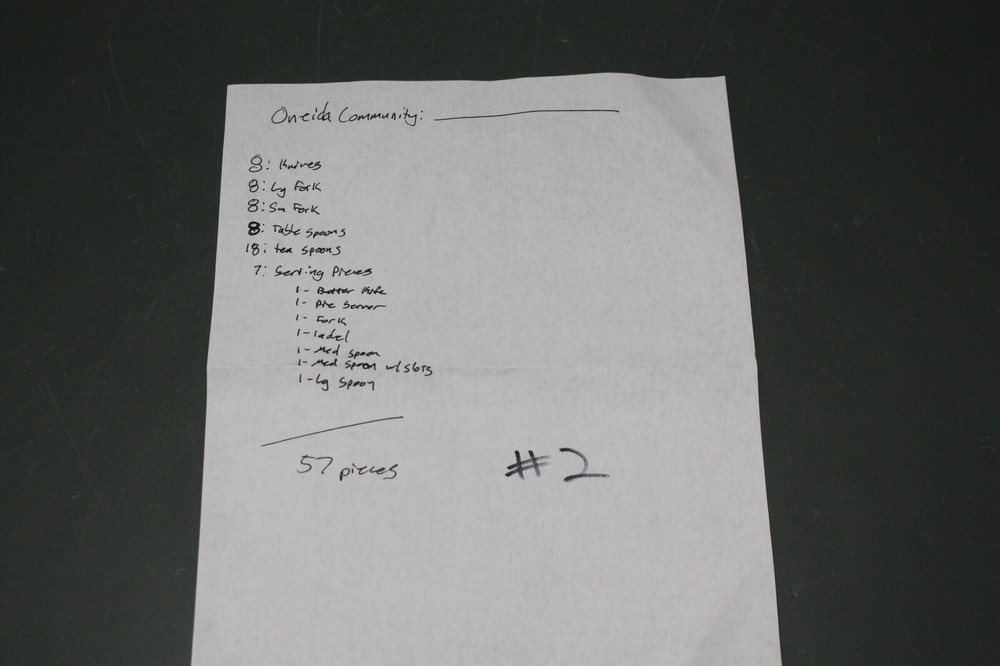 Oneida Community:
8: Knives
8: Lg Fork
8: Sm Fork
8: Table spoons
18: tea spoons
7: Serving Pieces
1- Butter Knife
1- Pie Server
1- Fork
1- ladel
1- Med spoon
1- Med spoon w/slots
1- Lg Spoon
57 pieces
#2